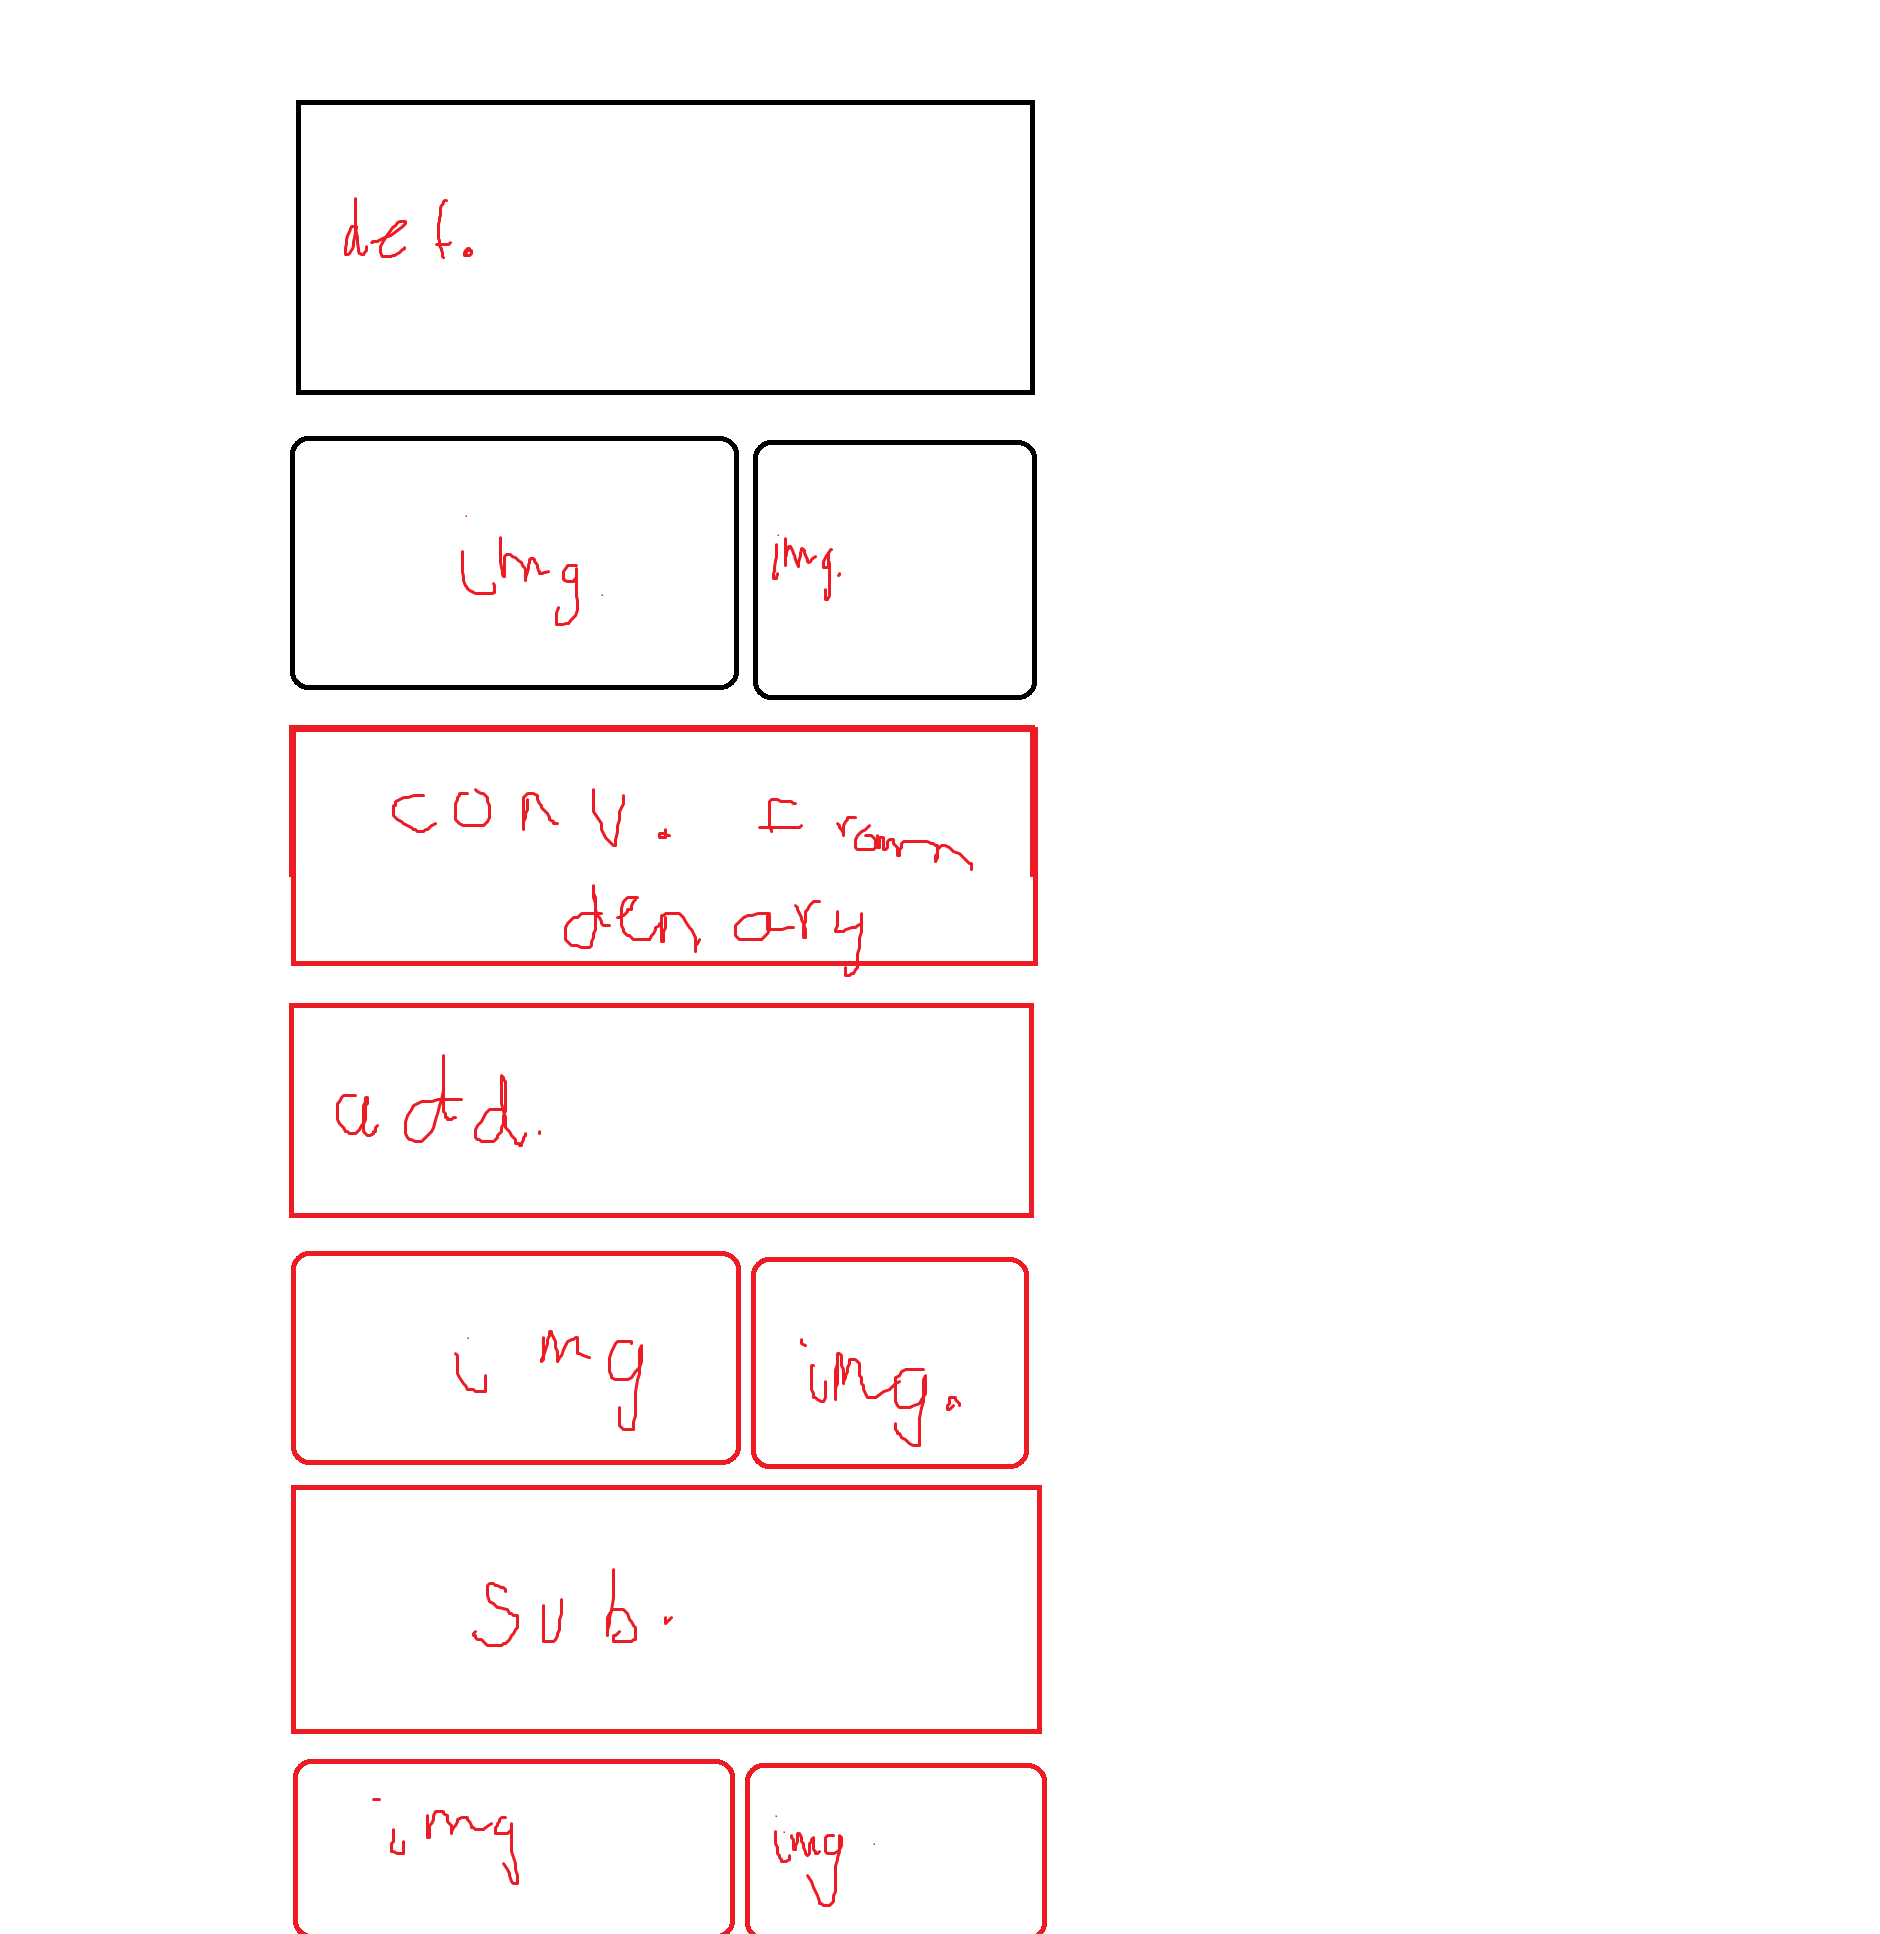 def.
img. img.
conv. From
denary
add.
img img.
Sub.
img img.